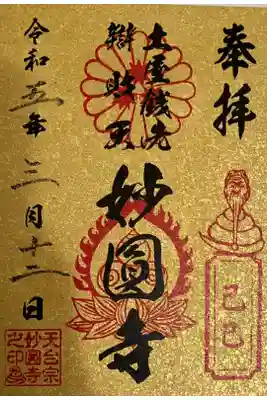 奉拝
己巳
土屋錢洗
辯財天
妙圓寺
令和五年三月十二日
天台宗
妙圓寺
之印